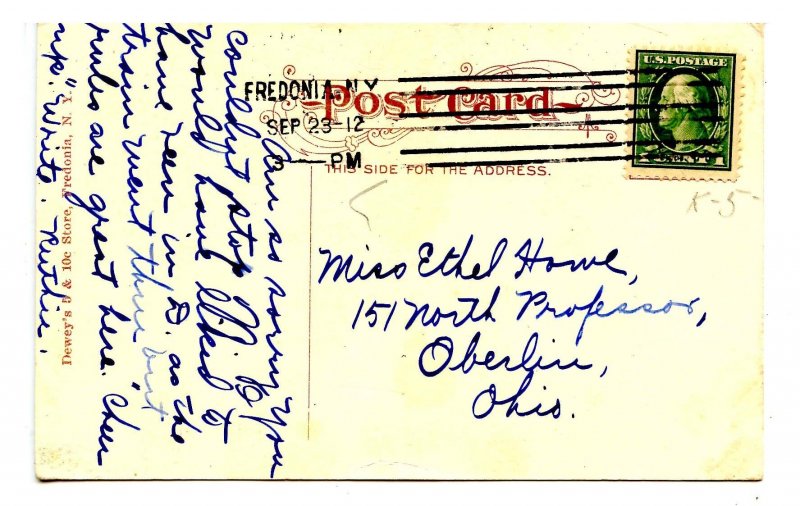 FREDONIA, N.Y.
SEP 23-12
3 — PM
Post Card
THIS SIDE FOR THE ADDRESS.
U.S. POSTAGE
K-5-
Miss Ethel Howe,
151 North Professor,
Oberlin,
Ohio.
Am so sorry you
couldn't stop
would have liked to
have seen in D. as the
train went thru but
rules are great here. Cheer
up". Write. Ruthie.
Dewey's 5 & 10c Store, Fredonia, N. Y.